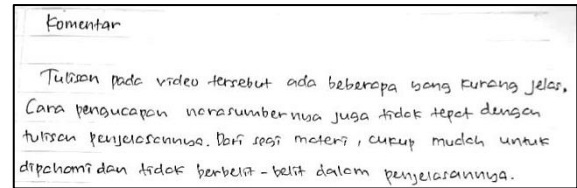 Komentar
Tulisan pada video tersebut ada beberapa yang kurang jelas,
Cara pengucapan narasumbernya juga tidak tepat dengan
tulisan penjelasannya. Dari segi materi, cukup mudah untuk
dipahami dan tidak berbelit-belit dalam penjelasannya.